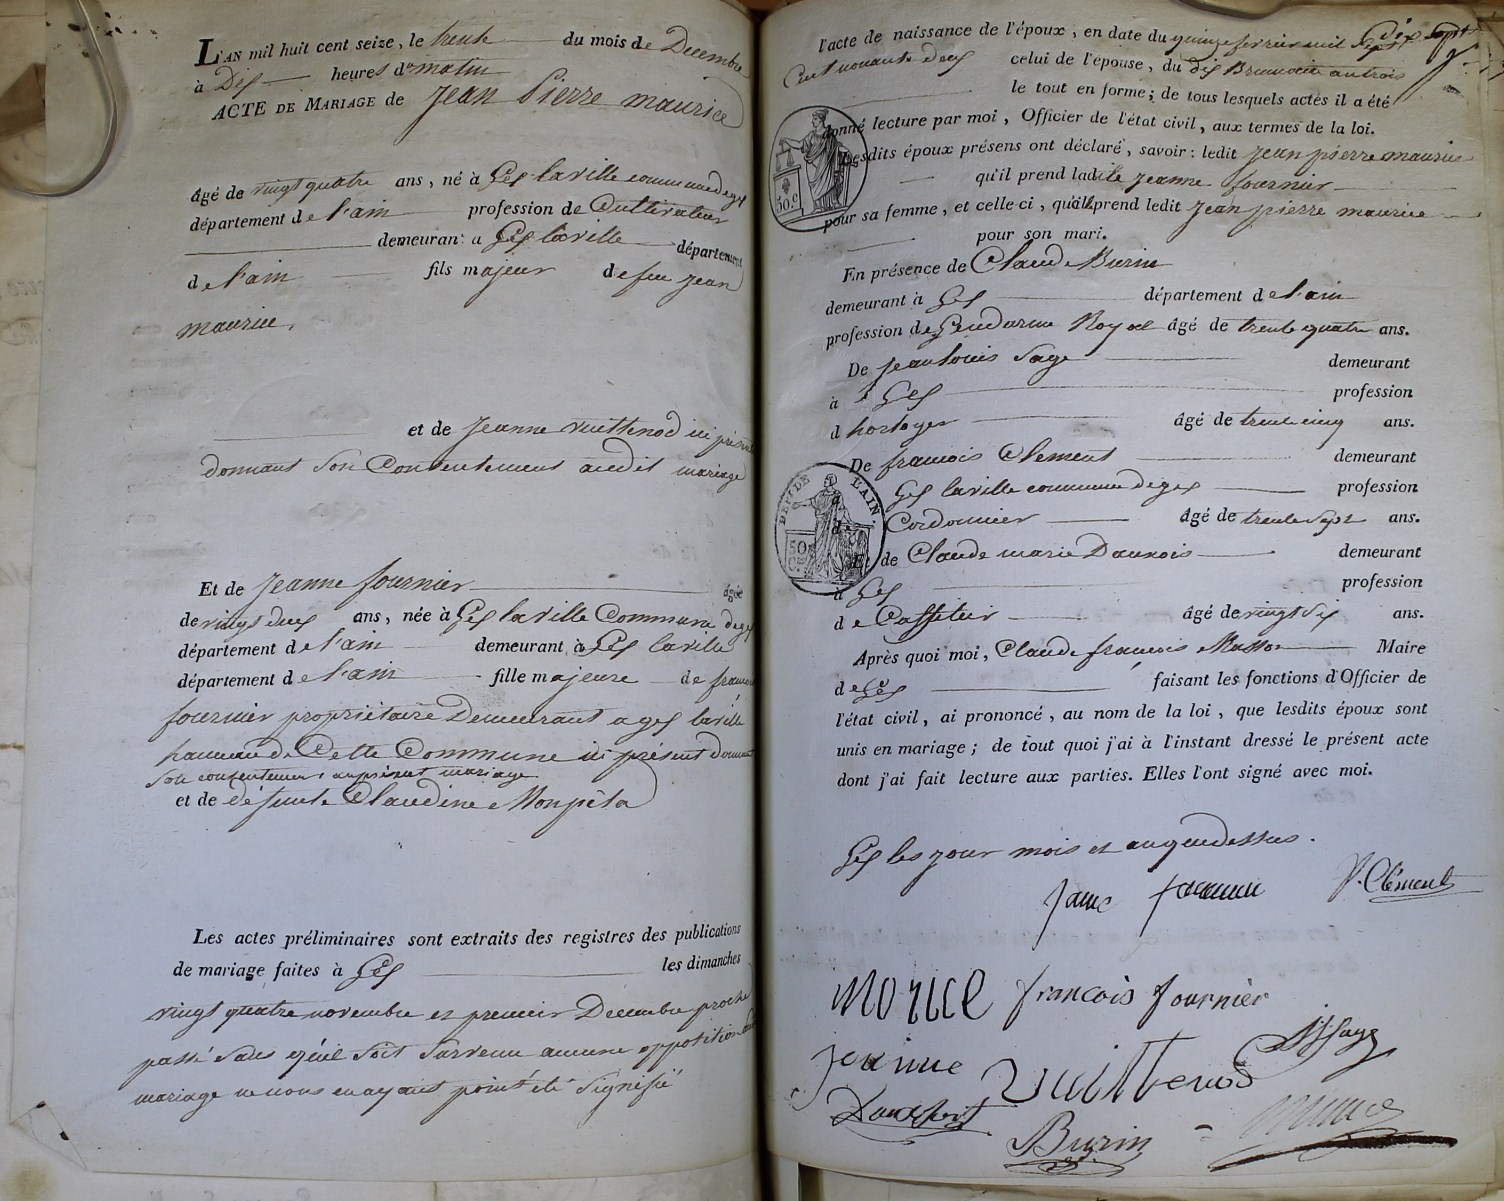 L'AN mil huit cent seize, le trente du mois de Decembre
à Dix heures du matin
ACTE DE MARIAGE de Jean Pierre maurice
âgé de vingt quatre ans, né à Gex la ville commune de gex
département de l'ain profession de Cultivateur
demeurant a Gex la ville département
de l'ain fils majeur de feu jean
maurice,
et de Jeanne vuittenod ici présente
donnant Son Consentement audit mariage
Et de Jeanne fournier âgée
de vingt deux ans, née à Gex la ville Commune de gex
département de l'ain demeurant à Gex la ville
département de l'ain fille majeure de francois
fournier propriétaire Demeurant a gex la ville
hameau de Cette Commune ici présent donnant
Son consentement au présent mariage
et de défunte Claudine Monpéla
Les actes préliminaires sont extraits des registres des publications
de mariage faites à Gex les dimanches
vingt quatre novembre et premier Decembre proche
passé Sans qu'il Soit Survenu aucune opposition audit
mariage ne nous en ayant point été Signifié
l'acte de naissance de l'époux, en date du quinze fevrier mil Sept
Cent nonante deux celui de l'épouse, du dix Brumaire an trois
le tout en forme; de tous lesquels actes il a été
donné lecture par moi, Officier de l'état civil, aux termes de la loi.
Lesdits époux présens ont déclaré, savoir: ledit Jean pierre maurice
qu'il prend ladite Jeanne fournier
pour sa femme, et celle-ci, qu'elle prend ledit Jean pierre maurice
pour son mari.
En présence de Claude Burin
demeurant à Gex département de l'ain
profession de Gendarme Royal âgé de trente quatre ans.
De Jean louis Sage demeurant
à Gex profession
d horloger âgé de trente cinq ans.
De francois Clement demeurant
à Gex la ville commune de gex profession
de Cordonnier âgé de trente Sept ans.
Et de Claude marie Daunois demeurant
à Gex profession
de âgé de vingt Six ans.
Après quoi moi, Claude françois Masson Maire
de Gex faisant les fonctions d'Officier de
l'état civil, ai prononcé, au nom de la loi, que lesdits époux sont
unis en mariage; de tout quoi j'ai à l'instant dressé le présent acte
dont j'ai fait lecture aux parties. Elles l'ont signé avec moi.
Gex les jour mois et an que dessus.
f. Clément
Morice francois fournier
jeanne vuittenod
Burin
50 c
DEP. DE L'AIN.
50 C.